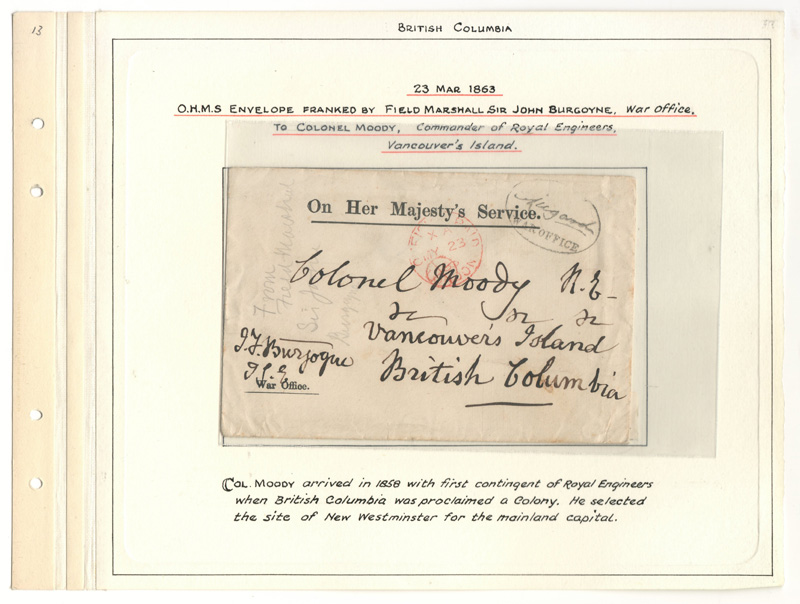 13
BRITISH COLUMBIA
23 MAR 1863
O.H.M.S ENVELOPE FRANKED BY FIELD MARSHALL SIR JOHN BURGOYNE, WAR OFFICE,
TO COLONEL MOODY, COMMANDER OF ROYAL ENGINEERS,
VANCOUVER'S ISLAND.
On Her Majesty's Service.
WAR OFFICE
23
From
Field Marshal
Sir
Colonel Moody R.E-
&c &c &c
Vancouver's Island
British Columbia
J.F. Burgoyne
War Office.
COL. MOODY arrived in 1858 with first contingent of Royal Engineers
when British Columbia was proclaimed a Colony. He selected
the site of New Westminster for the mainland capital.